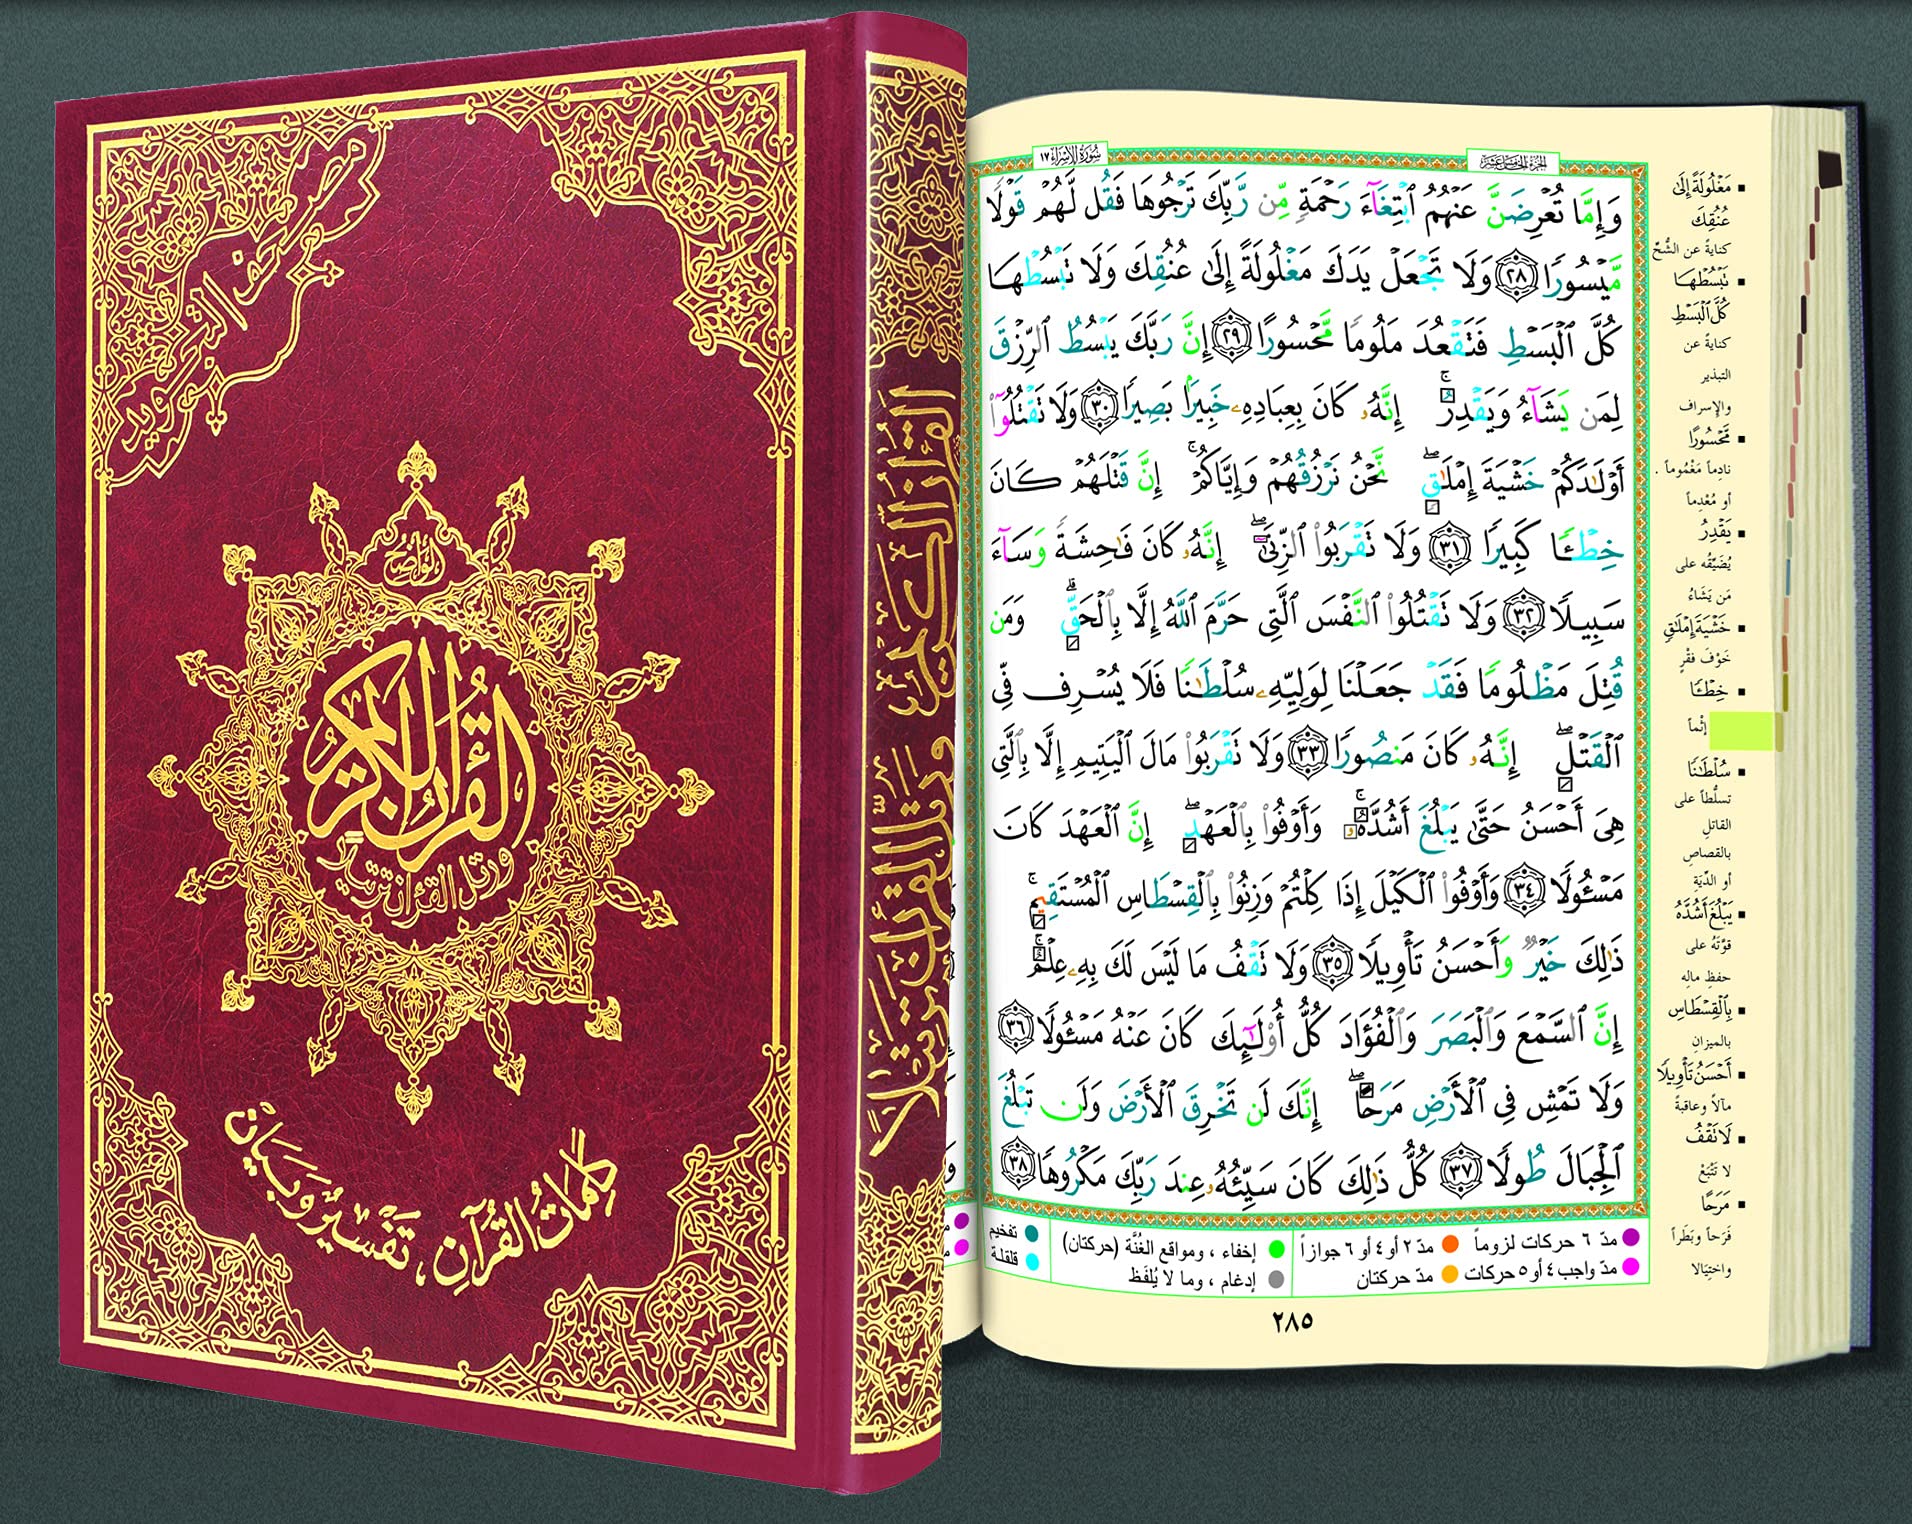 مصحف التجويد
الواضح
القرآن الكريم
ورتل القرءان ترتيلاً
كلمات القرآن، تفسير وبيان
القرآن الكريم ورتل القرءان ترتيلاً
سُورَةُ الإِسْرَاءِ ١٧
الجزء الخامس عشر
وَإِمَّا تُعْرِضَنَّ عَنْهُمُ ٱبْتِغَآءَ رَحْمَةٍ مِّن رَّبِّكَ تَرْجُوهَا فَقُل لَّهُمْ قَوْلًا
مَّيْسُورًا ٢٨ وَلَا تَجْعَلْ يَدَكَ مَغْلُولَةً إِلَىٰ عُنُقِكَ وَلَا تَبْسُطْهَا
كُلَّ ٱلْبَسْطِ فَتَقْعُدَ مَلُومًا مَّحْسُورًا ٢٩ إِنَّ رَبَّكَ يَبْسُطُ ٱلرِّزْقَ
لِمَن يَشَآءُ وَيَقْدِرُ ۚ إِنَّهُۥ كَانَ بِعِبَادِهِۦ خَبِيرًۢا بَصِيرًا ٣٠ وَلَا تَقْتُلُوٓا۟
أَوْلَـٰدَكُمْ خَشْيَةَ إِمْلَـٰقٍ ۖ نَّحْنُ نَرْزُقُهُمْ وَإِيَّاكُمْ ۚ إِنَّ قَتْلَهُمْ كَانَ
خِطْـًٔا كَبِيرًا ٣١ وَلَا تَقْرَبُوا۟ ٱلزِّنَىٰٓ ۖ إِنَّهُۥ كَانَ فَـٰحِشَةً وَسَآءَ
سَبِيلًا ٣٢ وَلَا تَقْتُلُوا۟ ٱلنَّفْسَ ٱلَّتِى حَرَّمَ ٱللَّهُ إِلَّا بِٱلْحَقِّ ۗ وَمَن
قُتِلَ مَظْلُومًا فَقَدْ جَعَلْنَا لِوَلِيِّهِۦ سُلْطَـٰنًا فَلَا يُسْرِف فِّى
ٱلْقَتْلِ ۖ إِنَّهُۥ كَانَ مَنصُورًا ٣٣ وَلَا تَقْرَبُوا۟ مَالَ ٱلْيَتِيمِ إِلَّا بِٱلَّتِى
هِىَ أَحْسَنُ حَتَّىٰ يَبْلُغَ أَشُدَّهُۥ ۚ وَأَوْفُوا۟ بِٱلْعَهْدِ ۖ إِنَّ ٱلْعَهْدَ كَانَ
مَسْـُٔولًا ٣٤ وَأَوْفُوا۟ ٱلْكَيْلَ إِذَا كِلْتُمْ وَزِنُوا۟ بِٱلْقِسْطَاسِ ٱلْمُسْتَقِيمِ ۚ
ذَٰلِكَ خَيْرٌ وَأَحْسَنُ تَأْوِيلًا ٣٥ وَلَا تَقْفُ مَا لَيْسَ لَكَ بِهِۦ عِلْمٌ ۚ
إِنَّ ٱلسَّمْعَ وَٱلْبَصَرَ وَٱلْفُؤَادَ كُلُّ أُو۟لَـٰٓئِكَ كَانَ عَنْهُ مَسْـُٔولًا ٣٦
وَلَا تَمْشِ فِى ٱلْأَرْضِ مَرَحًا ۖ إِنَّكَ لَن تَخْرِقَ ٱلْأَرْضَ وَلَن تَبْلُغَ
ٱلْجِبَالَ طُولًا ٣٧ كُلُّ ذَٰلِكَ كَانَ سَيِّئُهُۥ عِندَ رَبِّكَ مَكْرُوهًا ٣٨
مَغْلُولَةً إِلَىٰ
عُنُقِكَ
كنايةً عن الشُّحّ
تَبْسُطْهَا
كُلَّ ٱلْبَسْطِ
كنايةً عن
التبذير
والإسراف
مَّحْسُورًا
نادِماً مَغْمُوماً .
أو مُعْدِماً
يَقْدِرُ
يُضَيِّقُه على
مَن يَشَاءُ
خَشْيَةَ إِمْلَـٰقٍ
خَوْفَ فقْرٍ
خِطْـًٔا
إثْماً
سُلْطَـٰنًا
تسلُّطاً على
القاتلِ
بالقصاصِ
أو الدِّيَةِ
يَبْلُغَ أَشُدَّهُ
قوّتَهُ على
حفظِ مالِه
بِٱلْقِسْطَاسِ
بالميزانِ
أَحْسَنُ تَأْوِيلًا
مآلاً وعاقبةً
لَا تَقْفُ
لا تَتْبَعْ
مَرَحًا
فَرَحاً وبَطَراً
واختِيَالا
مدّ ٦ حركات لزوماً
مدّ ٢ أو ٤ أو ٦ جوازاً
إخفاء ، ومواقع الغُنَّة (حركتان)
تفخيم
مدّ واجب ٤ أو ٥ حركات
مدّ حركتان
إدغام ، وما لا يُلفَظ
قلقلة
٢٨٥